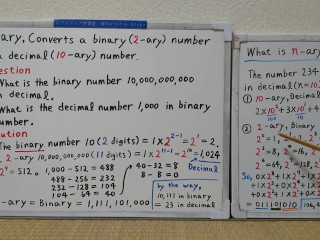 ary. Converts a binary (2-ary) number
n decimal (10-ary) number.
estion
What is the binary number 10,000,000,000
n decimal.
What is the decimal number 1,000 in binary
umber.
ution
The binary number 10 (2 digits) = 1×2²⁻¹ = 2¹ = 2.
2-ary 10,000,000,000 (11 digits) = 1×2¹¹⁻¹ = 2¹⁰ = 1,024
Decimal
2⁹ = 512. 1,000-512 = 488
488-256 = 232
232-128 = 104
104-64 = 40
40-32 = 8
8-8 = 0
by the way,
10,111 in binary
= 23 in decimal
-ary = Binary = 1,111,101,000
What is n-ary
The number 234
in decimal (n=10
① 10-ary, Decimal
2×10²+3×10¹+4
② 2-ary, Binary
2⁰=1,
2³=8,
2⁶=64, 2⁷=128,
So,
01110 1010